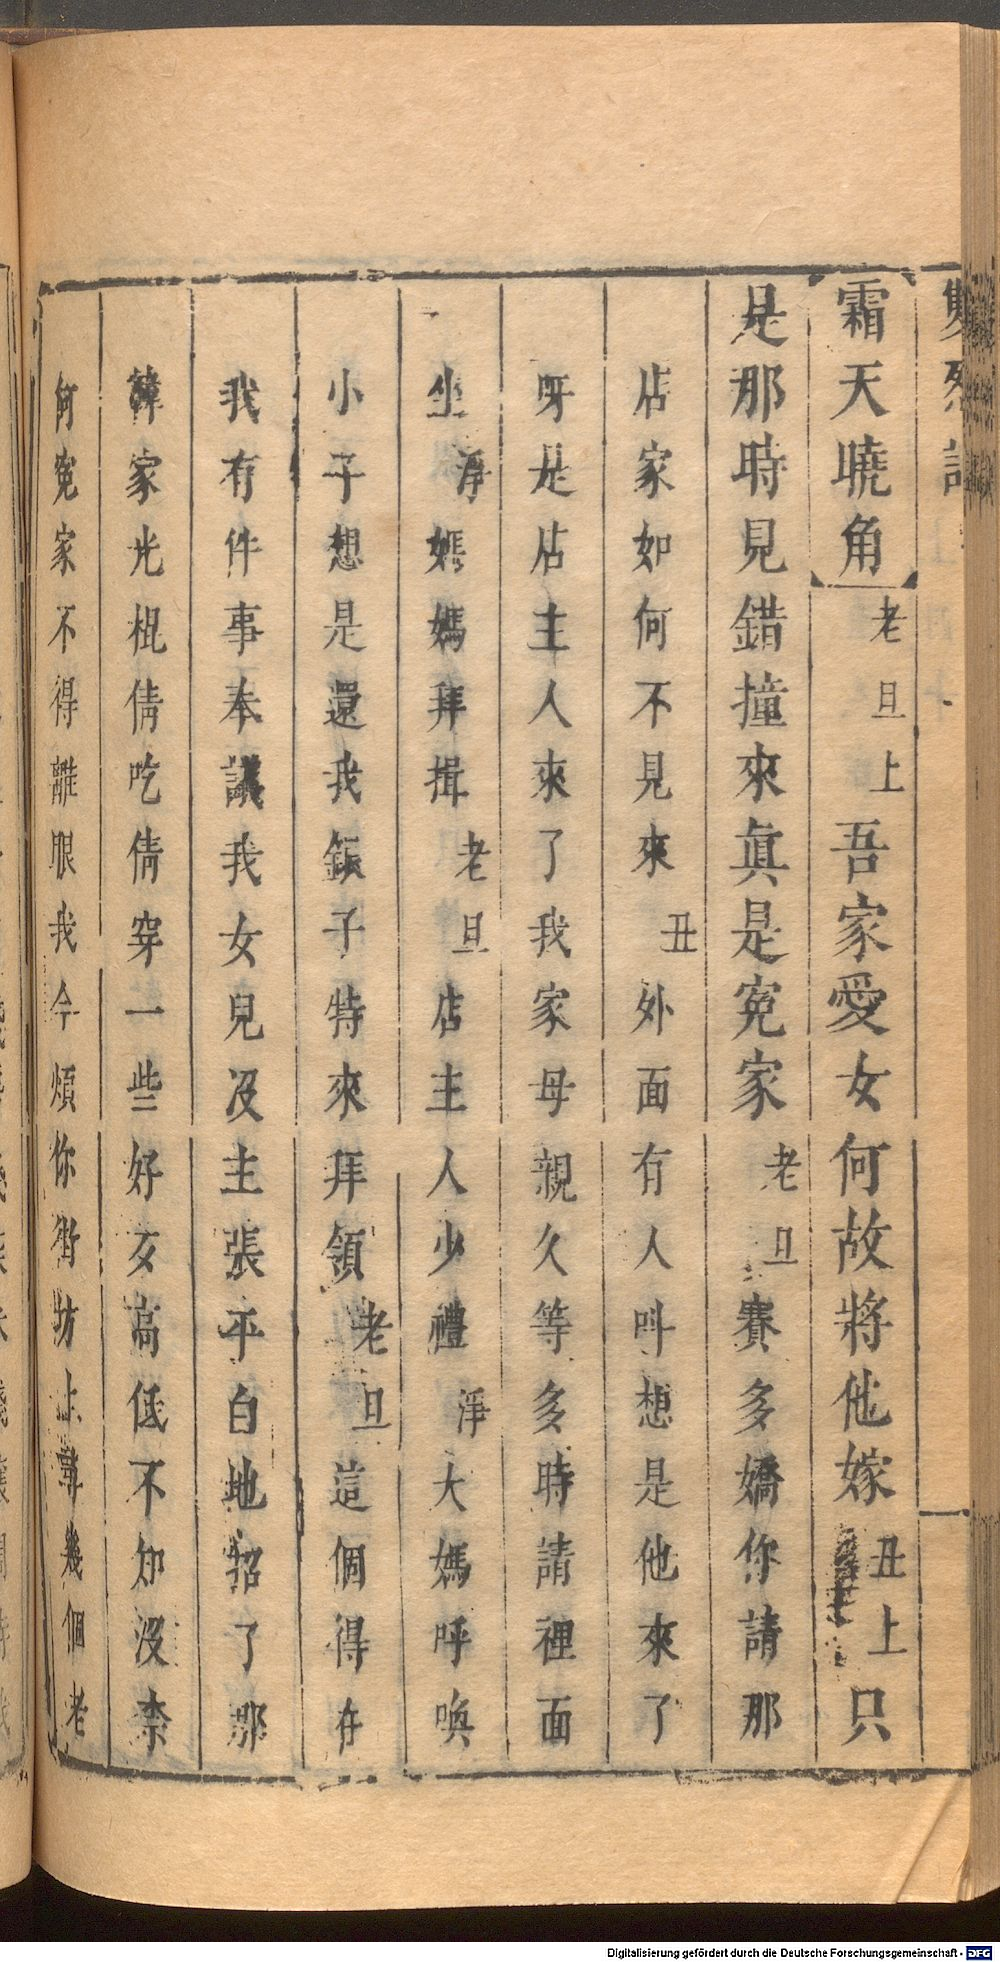 雙烈記
霜天曉角 老旦上 吾家愛女何故將他嫁 丑上 只
是那時見錯撞來眞是冤家 老旦 賽多嬌你請那
店家如何不見來 丑 外面有人呌想是他來了
呀是店主人來了我家母親久等多時請裡面
坐 淨 媽媽拜揖 老旦 店主人少禮 淨 大媽呼喚
小子想是還我飯子特來拜領 老旦 這個得在
我有件事奉議我女兒没主張平白地招了那
韓家光棍倩吃倩穿一些好歹高低不知沒柰
何冤家不得離眼我今煩你街坊上尋幾個老
Digitalisierung gefördert durch die Deutsche Forschungsgemeinschaft - DFG